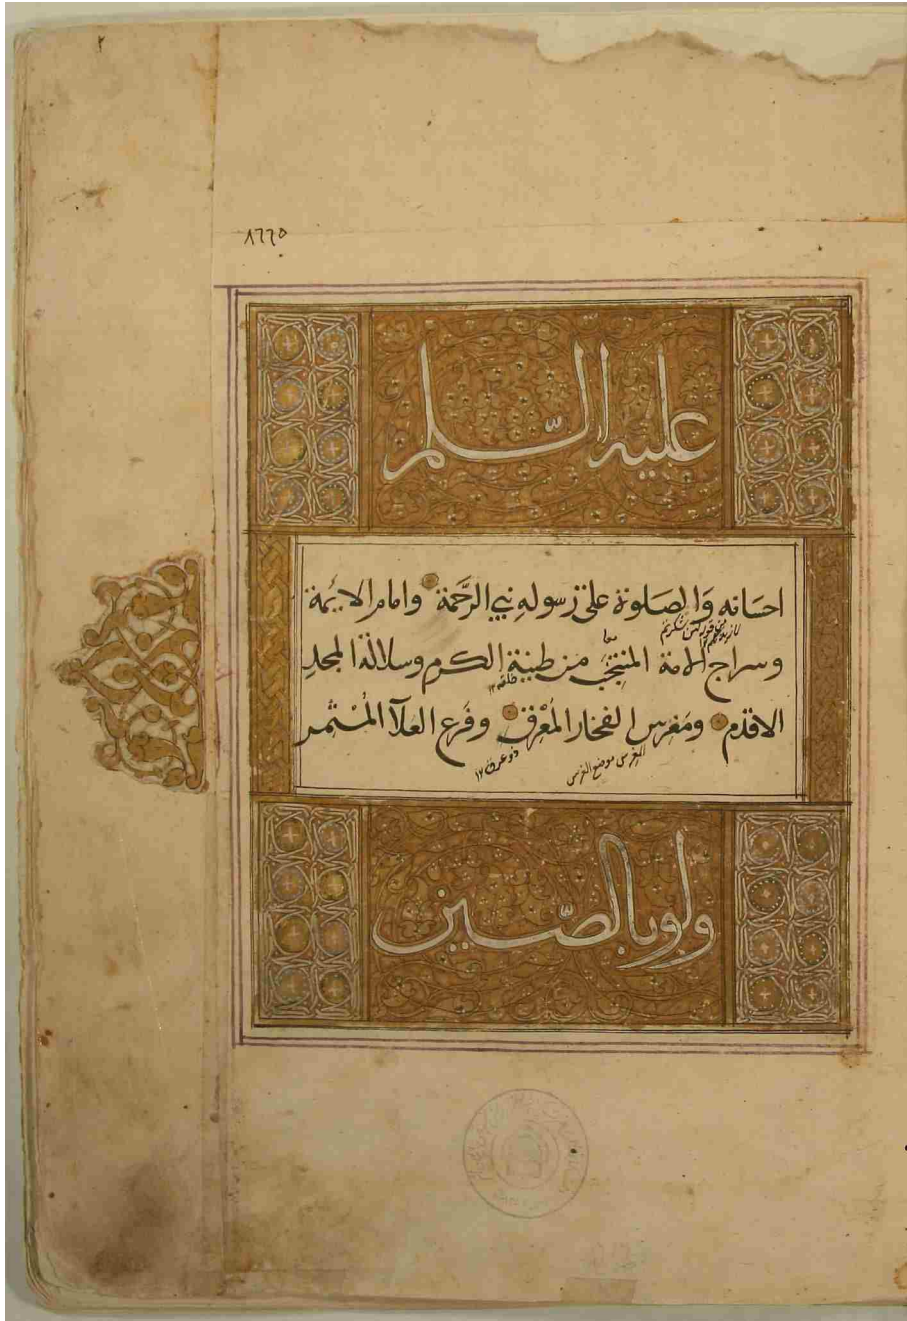 ٢
٨٦٦٥
عليه السلم
احسانه وَالصَلوة على رسوله نبي الرَّحمة وامام الايمة
وسراج الامة المنتجَب من طينة الكرم وسلالة المجد
الاقدم ومَغرس الفخار المعْرق وفَرع العلآ المُثمر
المغرس موضع الغرس
ولوبالصّين